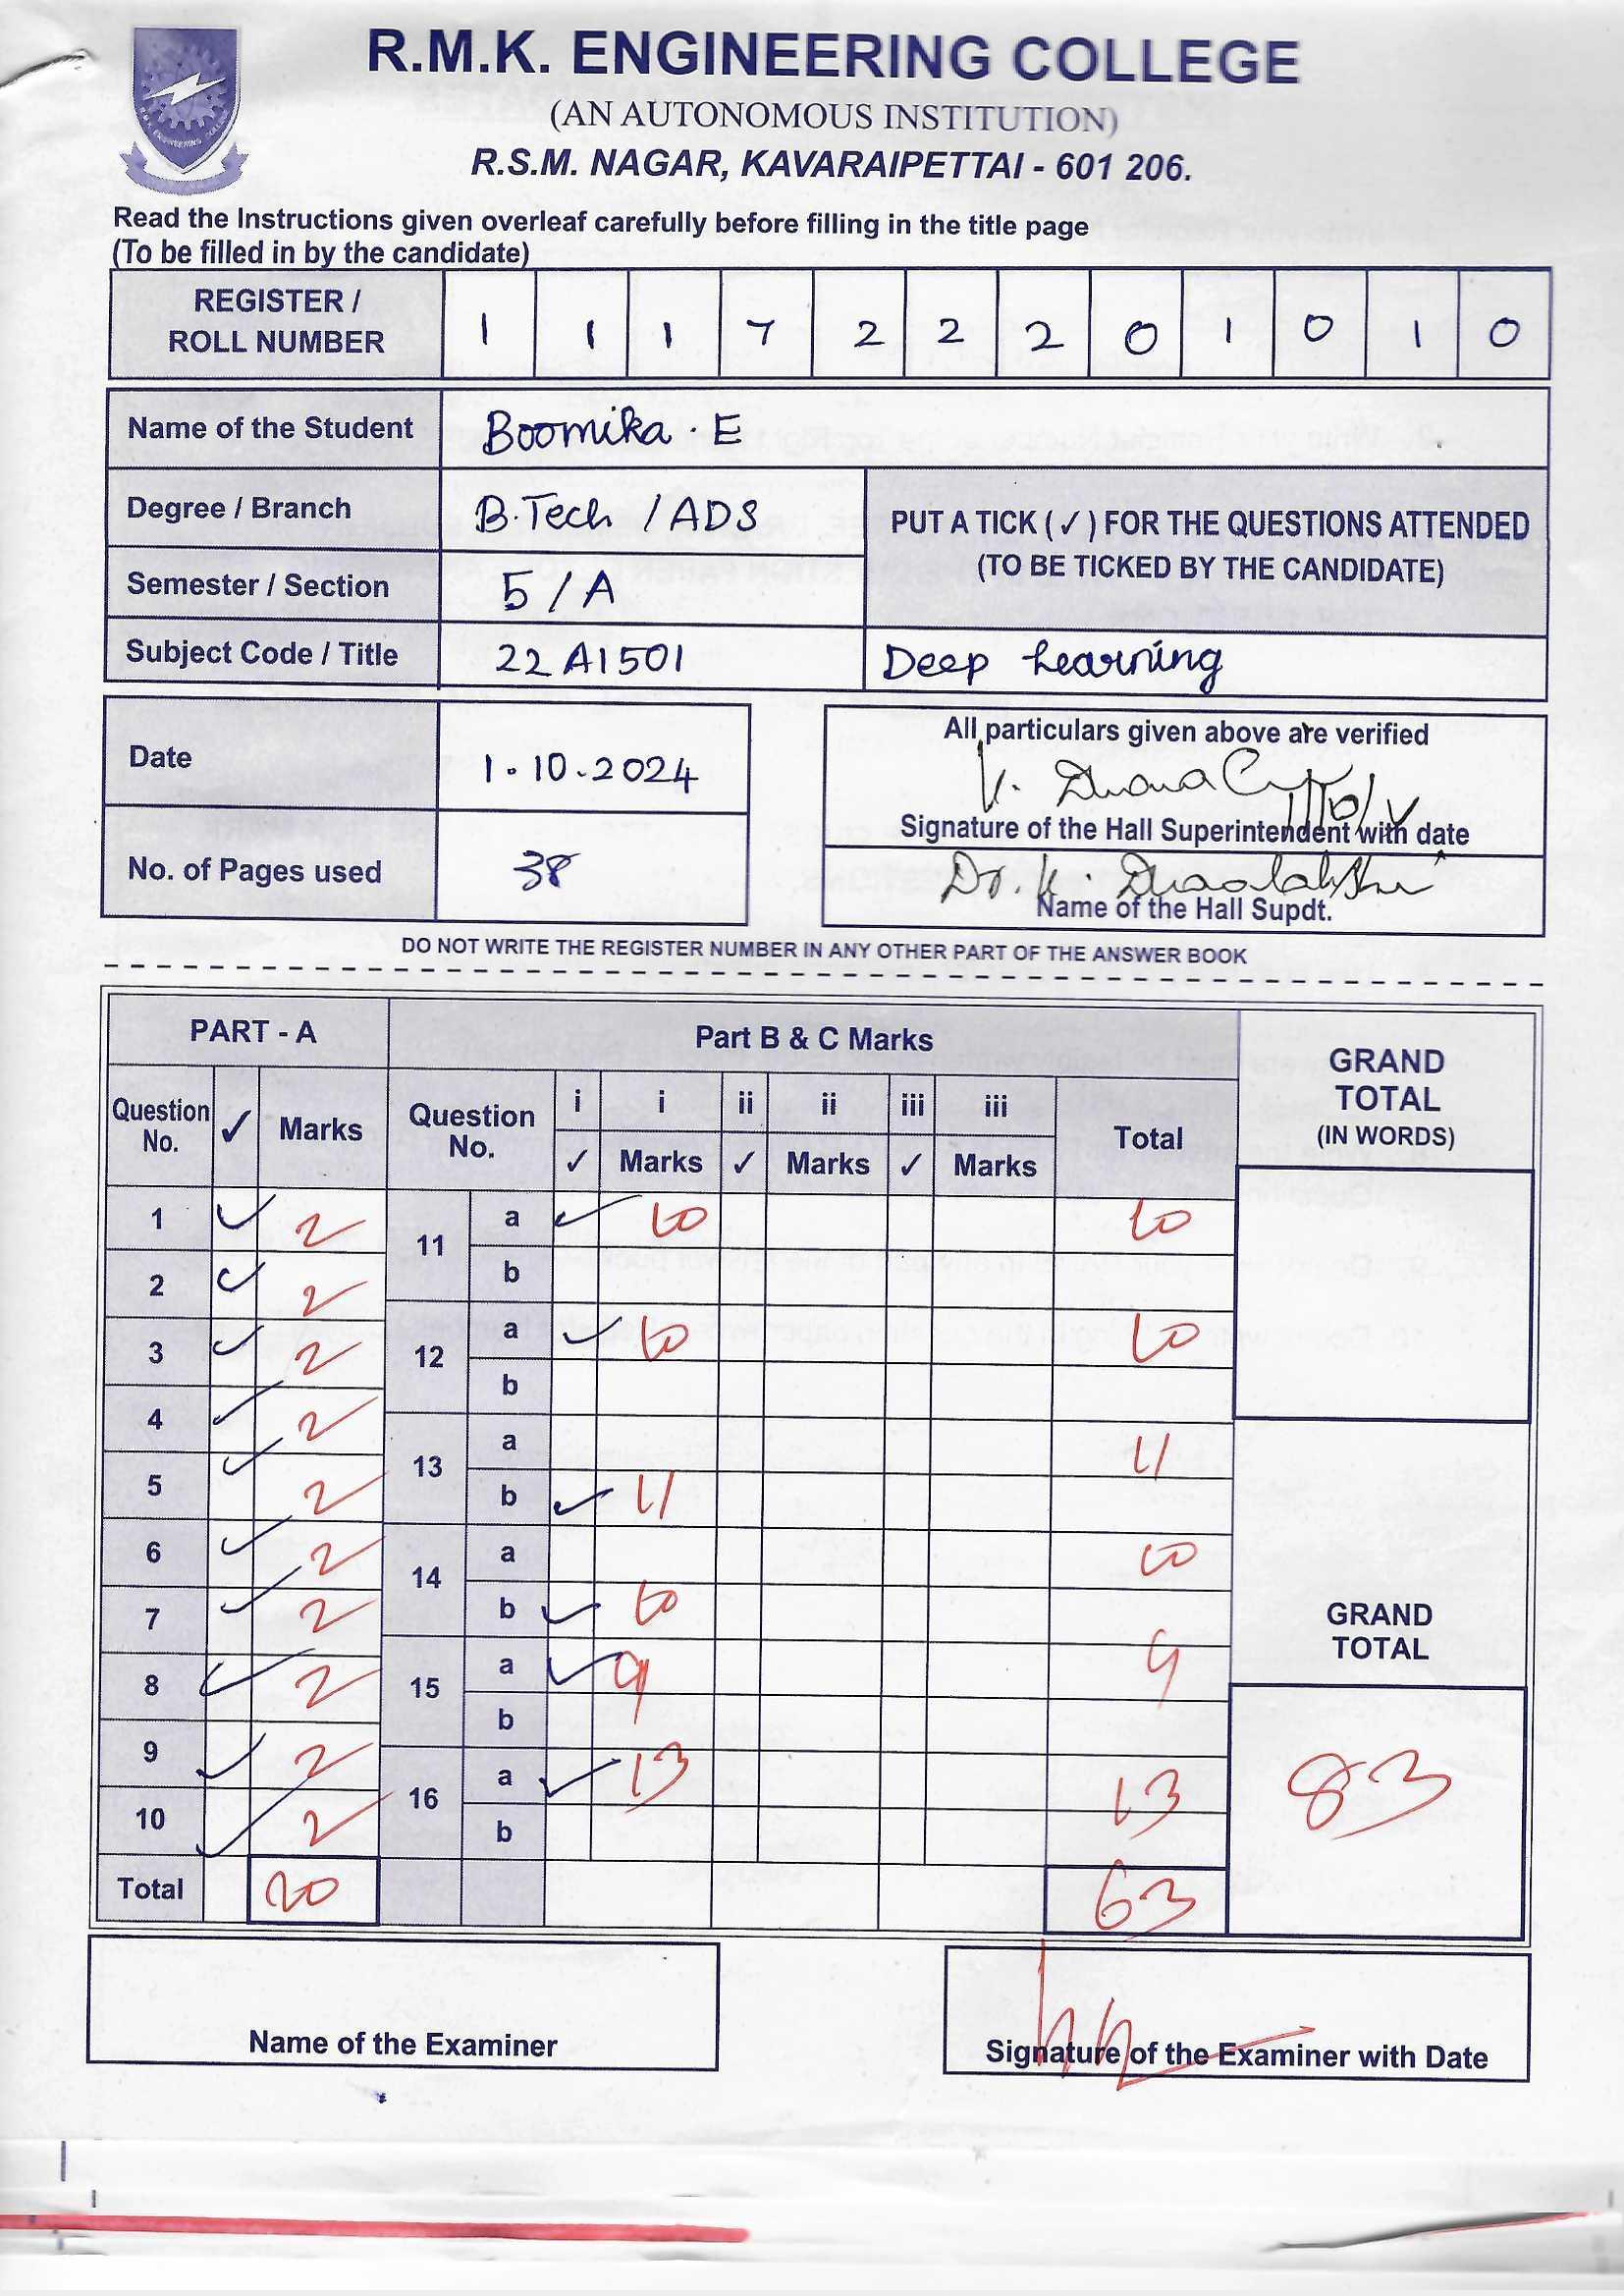 R.M.K. ENGINEERING COLLEGE
(AN AUTONOMOUS INSTITUTION)
R.S.M. NAGAR, KAVARAIPETTAI - 601 206.
Read the Instructions given overleaf carefully before filling in the title page
(To be filled in by the candidate)
REGISTER / ROLL NUMBER 1 1 1 7 2 2 2 0 1 0 1 0
Name of the Student Boomika . E
Degree / Branch B.Tech / ADS
PUT A TICK ( ✓ ) FOR THE QUESTIONS ATTENDED
(TO BE TICKED BY THE CANDIDATE)
Semester / Section 5 / A
Subject Code / Title 22AI501 Deep Learning
Date 1.10.2024
No. of Pages used 38
All particulars given above are verified
Signature of the Hall Superintendent with date
Dr. K.
Name of the Hall Supdt.
DO NOT WRITE THE REGISTER NUMBER IN ANY OTHER PART OF THE ANSWER BOOK
PART - A Part B & C Marks GRAND TOTAL (IN WORDS)
Question No. ✓ Marks Question No. i i ii ii iii iii Total
✓ Marks ✓ Marks ✓ Marks
1 ✓ 2 11 a ✓ 10 10
2 ✓ 2 b
3 ✓ 2 12 a ✓ 10 10
4 ✓ 2 b
5 ✓ 2 13 a 11
b ✓ 11
6 ✓ 2 14 a 10
7 ✓ 2 b ✓ 10
GRAND TOTAL
8 ✓ 2 15 a ✓ 9 9
b
9 ✓ 2 16 a ✓ 13 13
10 ✓ 2 b
83
Total 20 63
Name of the Examiner
Signature of the Examiner with Date